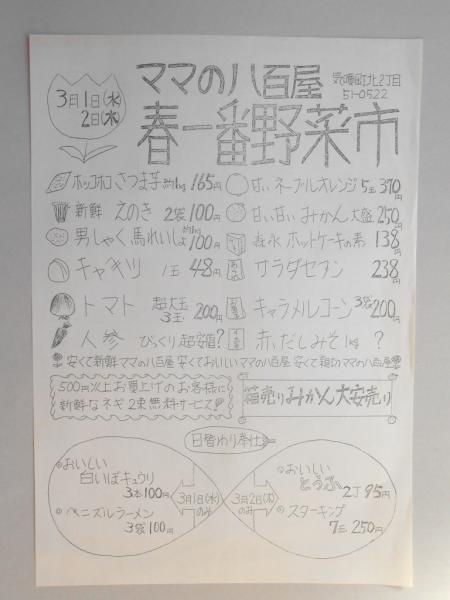 ママの八百屋
3月1日(水)
2日(木)
51-0522
春一番野菜市
ホッコホコさつま芋 約1kg 165円
甘いネーブルオレンジ 5玉 370円
新鮮 えのき 2袋100円
甘い甘い みかん 大盛 250円
男しゃく馬れいしょ 約1kg 100円
森永 ホットケーキの素 138円
キャベツ 1玉 48円
サラダセブン 238円
トマト 超大玉 3玉 200円
キャラメルコーン 3袋200円
人参 びっくり超安値?
赤だしみそ 1kg ?
安くて新鮮ママの八百屋 安くておいしいママの八百屋 安くて親切ママの八百屋
500円以上お買上げのお客様に
新鮮なネギ2束無料サービス!
箱売りみかん大安売り
日替わり奉仕
おいしい
白いぼキュウリ
3本100円
ベニズルラーメン
3袋100円
3月1日(水)
のみ
3月2日(木)
のみ
おいしい
とうふ 2丁 85円
スターキング
7コ 250円